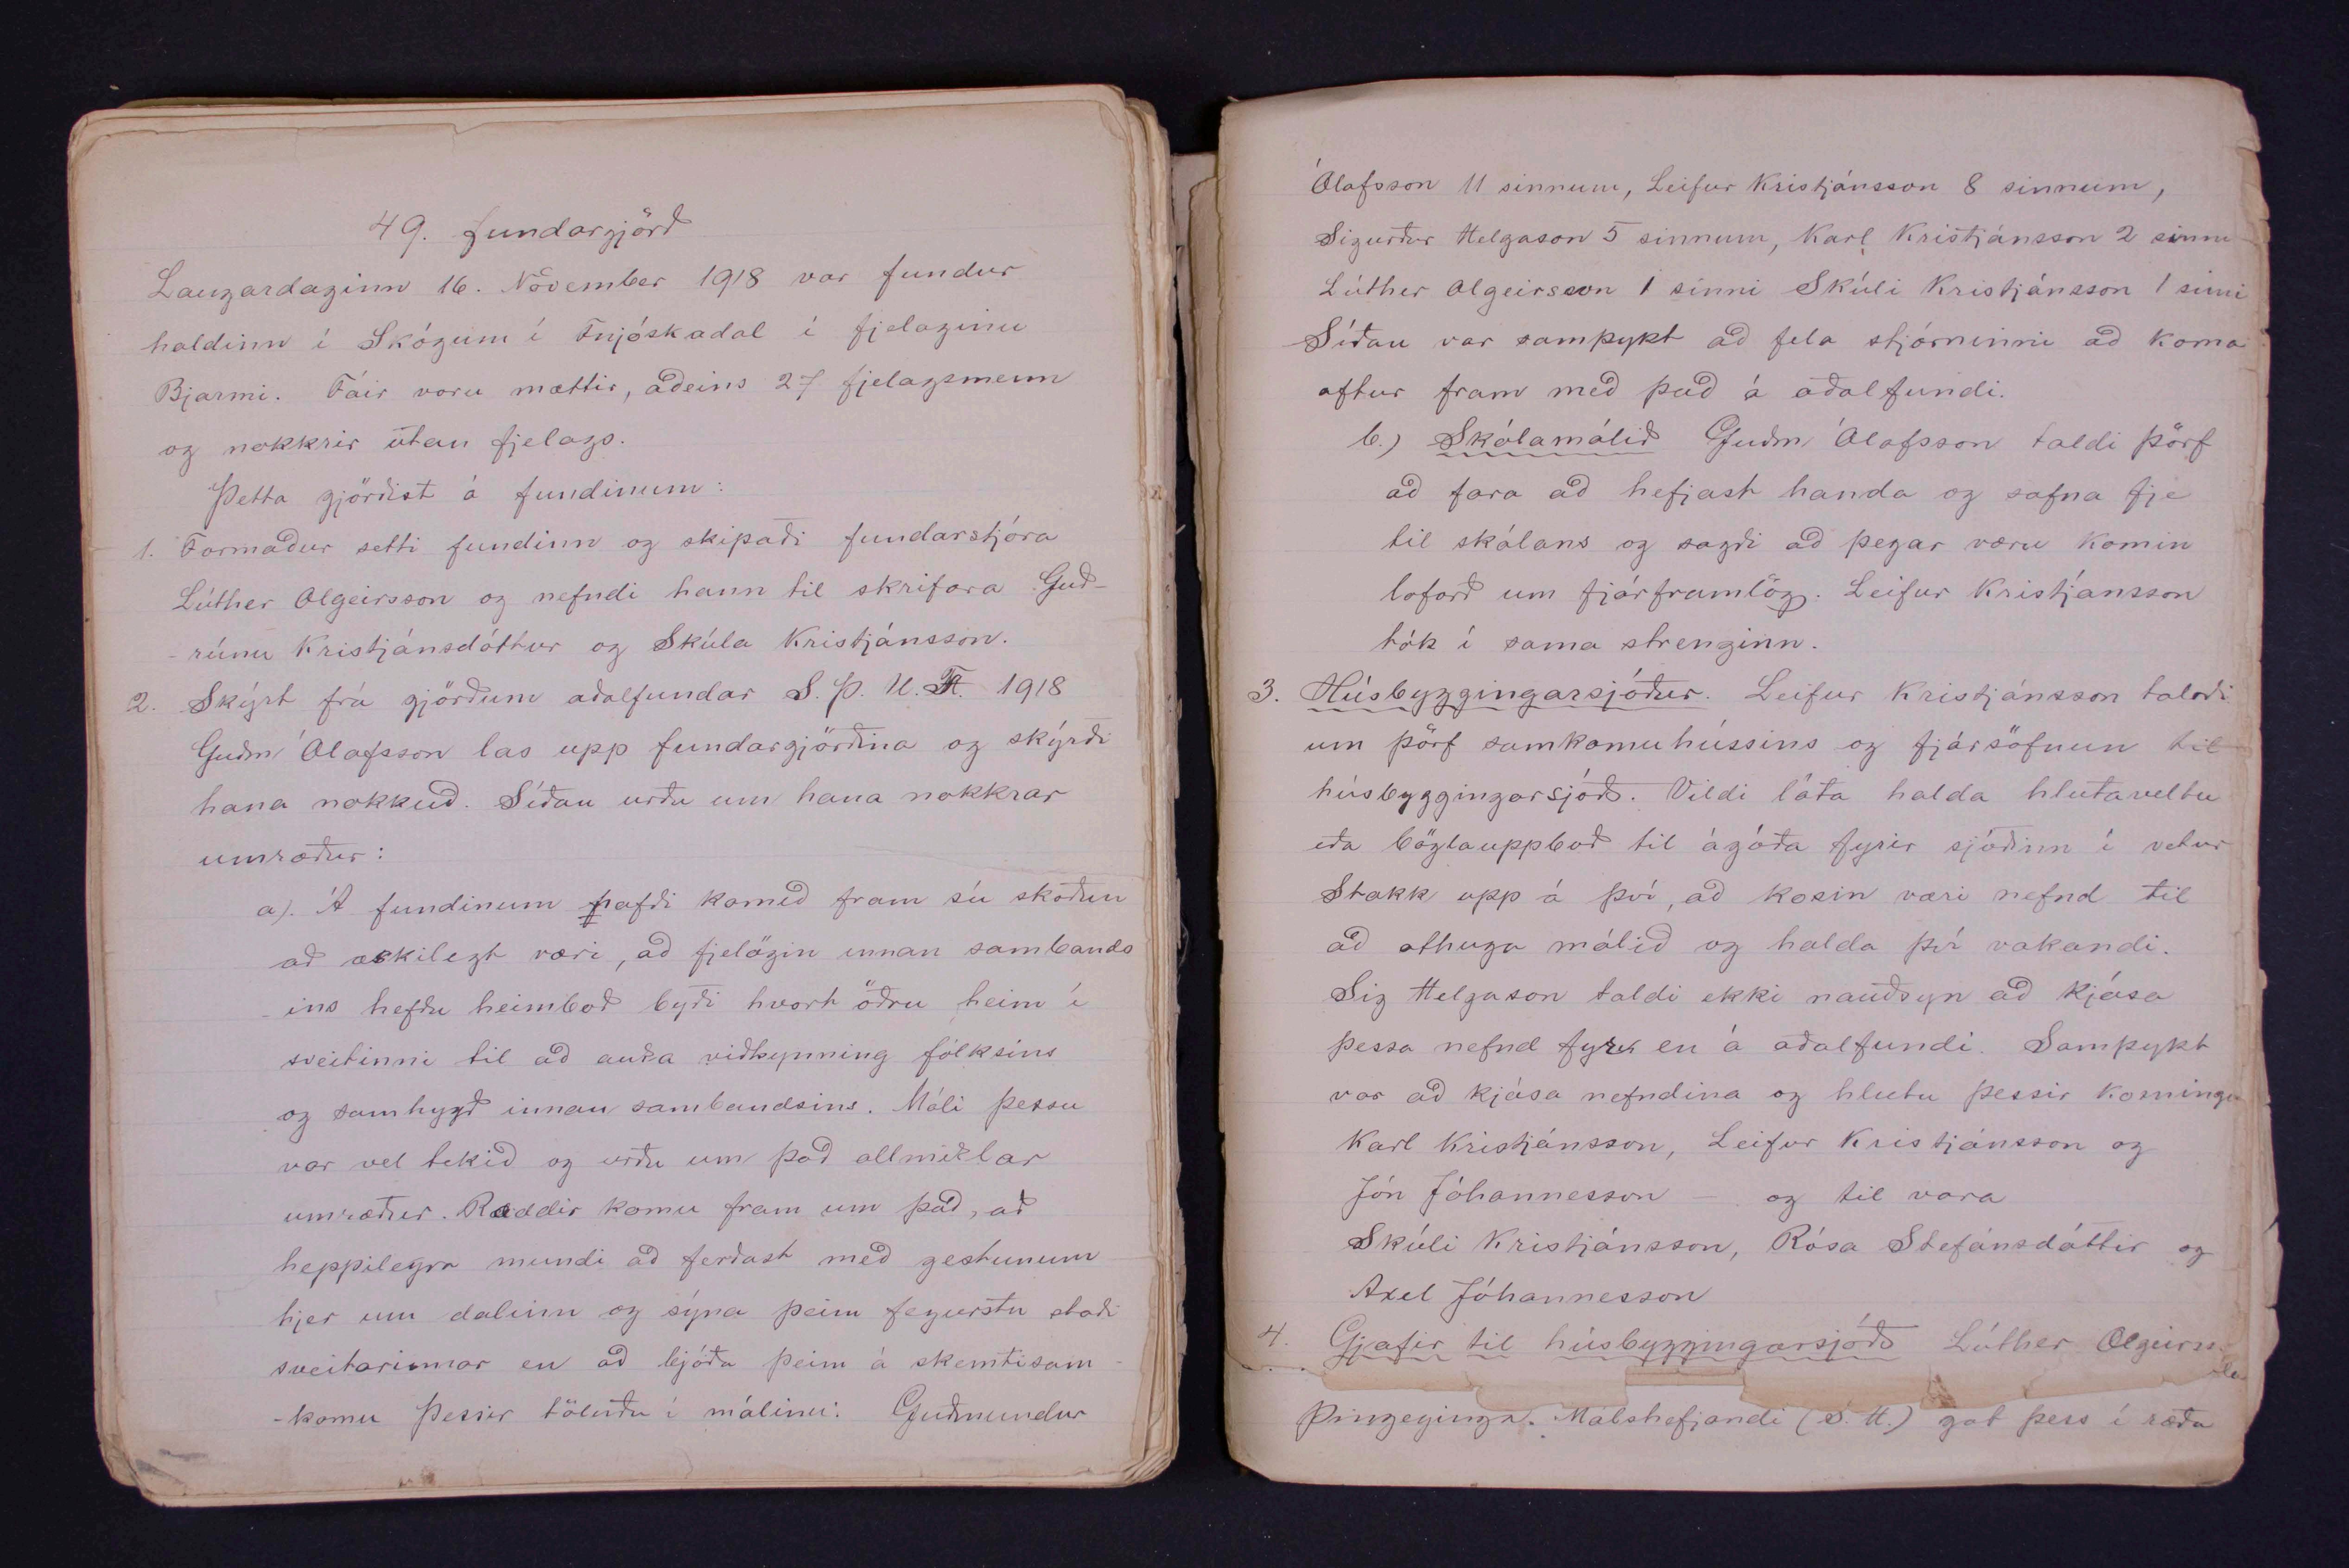 49. fundargjörð
Laugardaginn 16. Nóvember 1918 var fundur
haldinn í Skógum í Fnjóskadal í fjelaginu
Bjarmi. Fáir voru mættir, aðeins 27 fjelagsmenn
og nokkrir utan fjelags.
Þetta gjörðist á fundinum:
1. Formaður setti fundinn og skipaði fundarstjóra
Lúther Olgeirsson og nefndi hann til skrifara Guð-
-rúnu Kristjánsdóttur og Skúla Kristjánsson.
2. Skýrt frá gjörðum aðalfundar S. Þ. U. F. 1918
Guðm Ólafsson las upp fundargjörðina og skýrði
hana nokkuð. Síðan urðu um hana nokkrar
umræður:
a). Á fundinum hafði komið fram sú skoðun
að æskilegt væri, að fjelögin innan sambands
-ins hefðu heimboð byði hvort öðru heim í
sveitinni til að auka viðkynning fólksins
og samhygð innan sambandsins. Máli þessu
var vel tekið og urðu um það allmiklar
umræður. Raddir komu fram um það, að
heppilegra mundi að ferðast með gestunum
hjer um dalinn og sýna þeim fegurstu staði
sveitarinnar en að bjóða þeim á skemtisam-
-komu Þessir töluðu í málinu: Guðmundur
Ólafsson 11 sinnum, Leifur Kristjánsson 8 sinnum,
Sigurður Helgason 5 sinnum, Karl Kristjánsson 2 sinnu
Lúther Olgeirsson 1 sinni Skúli Kristjánsson 1 sinni
Síðan var samþykt að fela stjórninni að koma
aftur fram með það á aðalfundi.
b.) Skólamálið Guðm Ólafsson taldi þörf
að fara að hefjast handa og safna fje
til skólans og sagði að þegar væru komin
loforð um fjárframlög. Leifur Kristjánsson
tók í sama strenginn.
3. Húsbyggingarsjóður. Leifur Kristjánsson talaði
um þörf samkomuhússins og fjársöfnun til
húsbyggingarsjóðs. Vildi láta halda hlutaveltu
eða bögglauppboð til ágóða fyrir sjóðinn í vetur
Stakk upp á því, að kosin væri nefnd til
að athuga málið og halda því vakandi.
Sig Helgason taldi ekki nauðsyn að kjósa
þessa nefnd fyr en á aðalfundi. Samþykt
var að kjósa nefndina og hlutu þessir kosningu
Karl Kristjánsson, Leifur Kristjánsson og
Jón Jóhannesson – og til vara
Skúli Kristjánsson, Rósa Stefánsdóttir og
Axel Jóhannesson
4. Gjafir til húsbyggingarsjóðs Lúther Olgeirss
Þingeyinga. Málshefjandi (S. H.) gat þess í ræðu